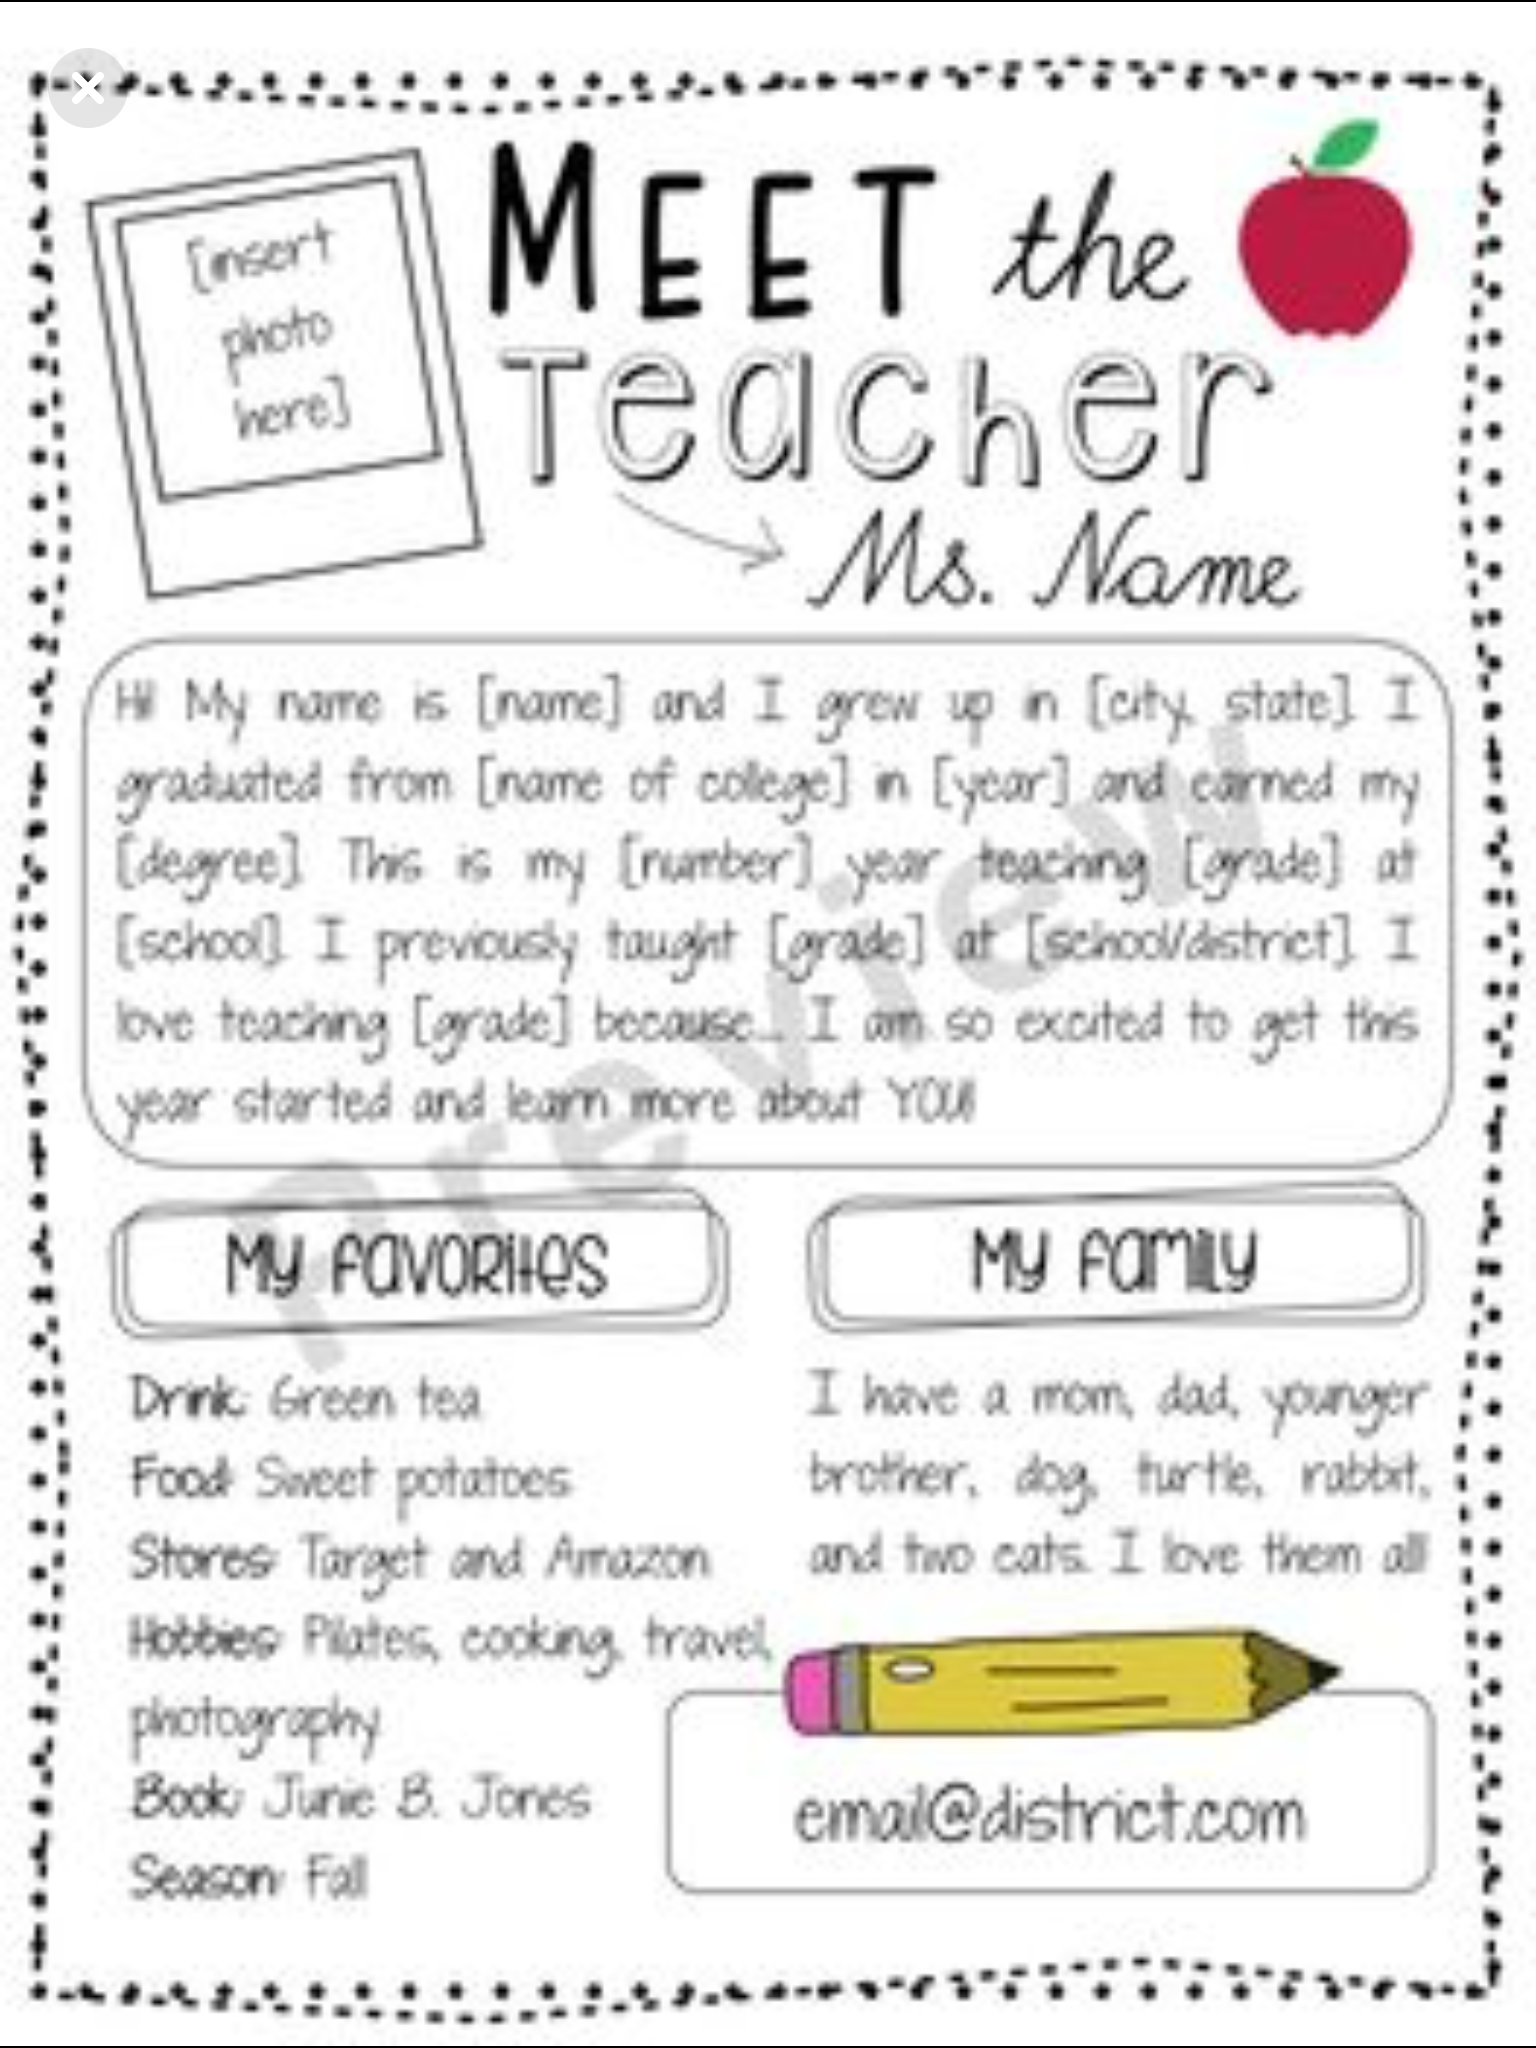 [insert
photo
here]
MEET the
Teacher
Ms. Name
Hi! My name is [name] and I grew up in [city, state]. I
graduated from [name of college] in [year] and earned my
[degree]. This is my [number] year teaching [grade] at
[school]. I previously taught [grade] at [school/district]. I
love teaching [grade] because... I am so excited to get this
year started and learn more about YOU!
Preview
My favorites
Drink: Green tea
Food: Sweet potatoes
Stores: Target and Amazon
Hobbies: Pilates, cooking, travel,
photography
Book: Junie B. Jones
Season: Fall
My family
I have a mom, dad, younger
brother, dog, turtle, rabbit,
and two cats. I love them all!
email@district.com